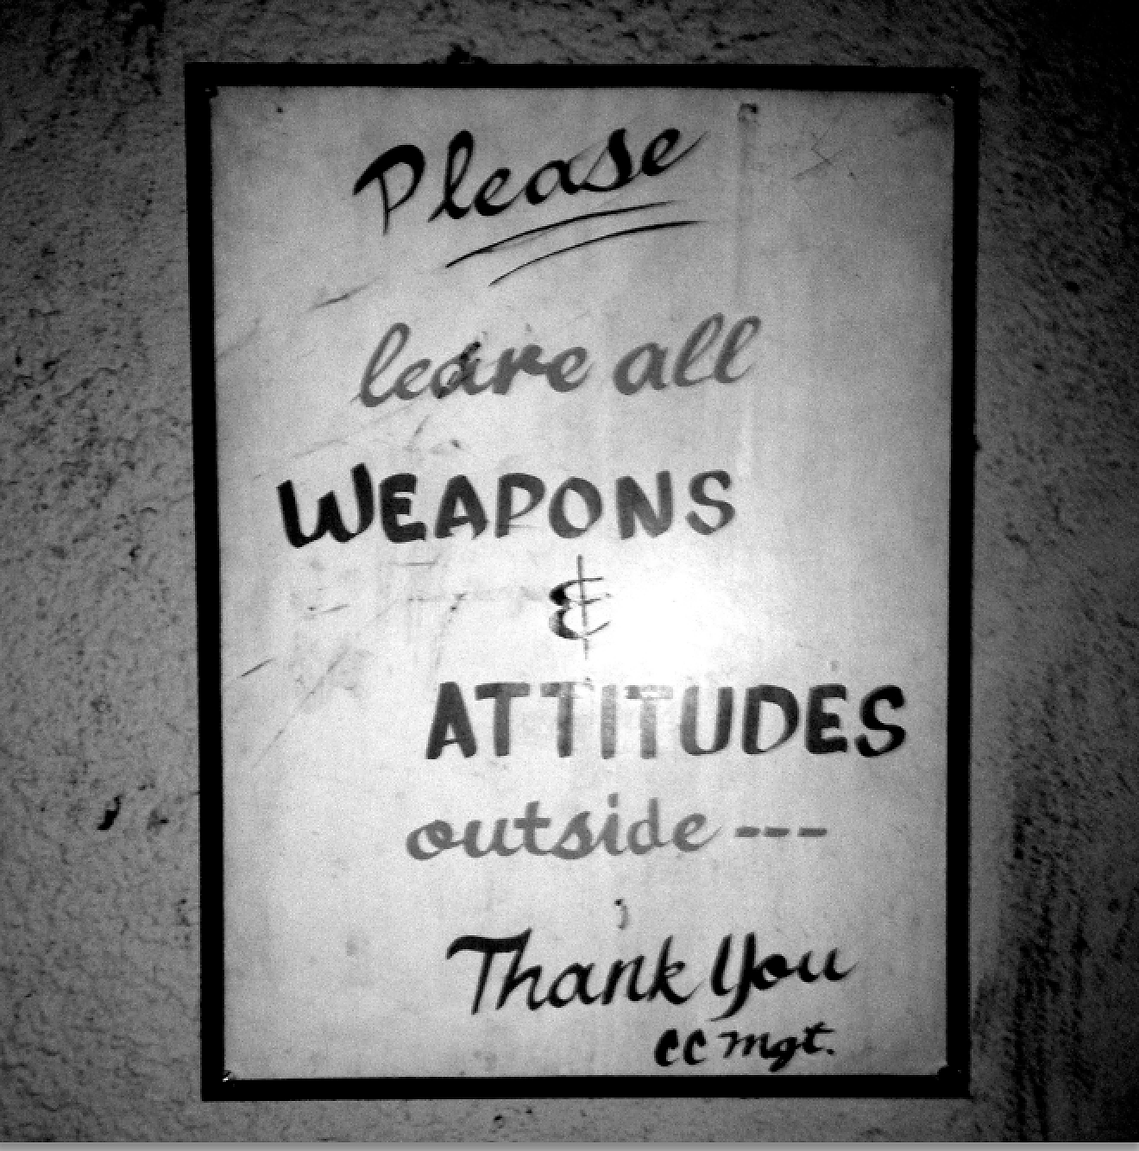 Please
leave all
WEAPONS
&
ATTITUDES
outside ---
Thank You
CC Mgt.